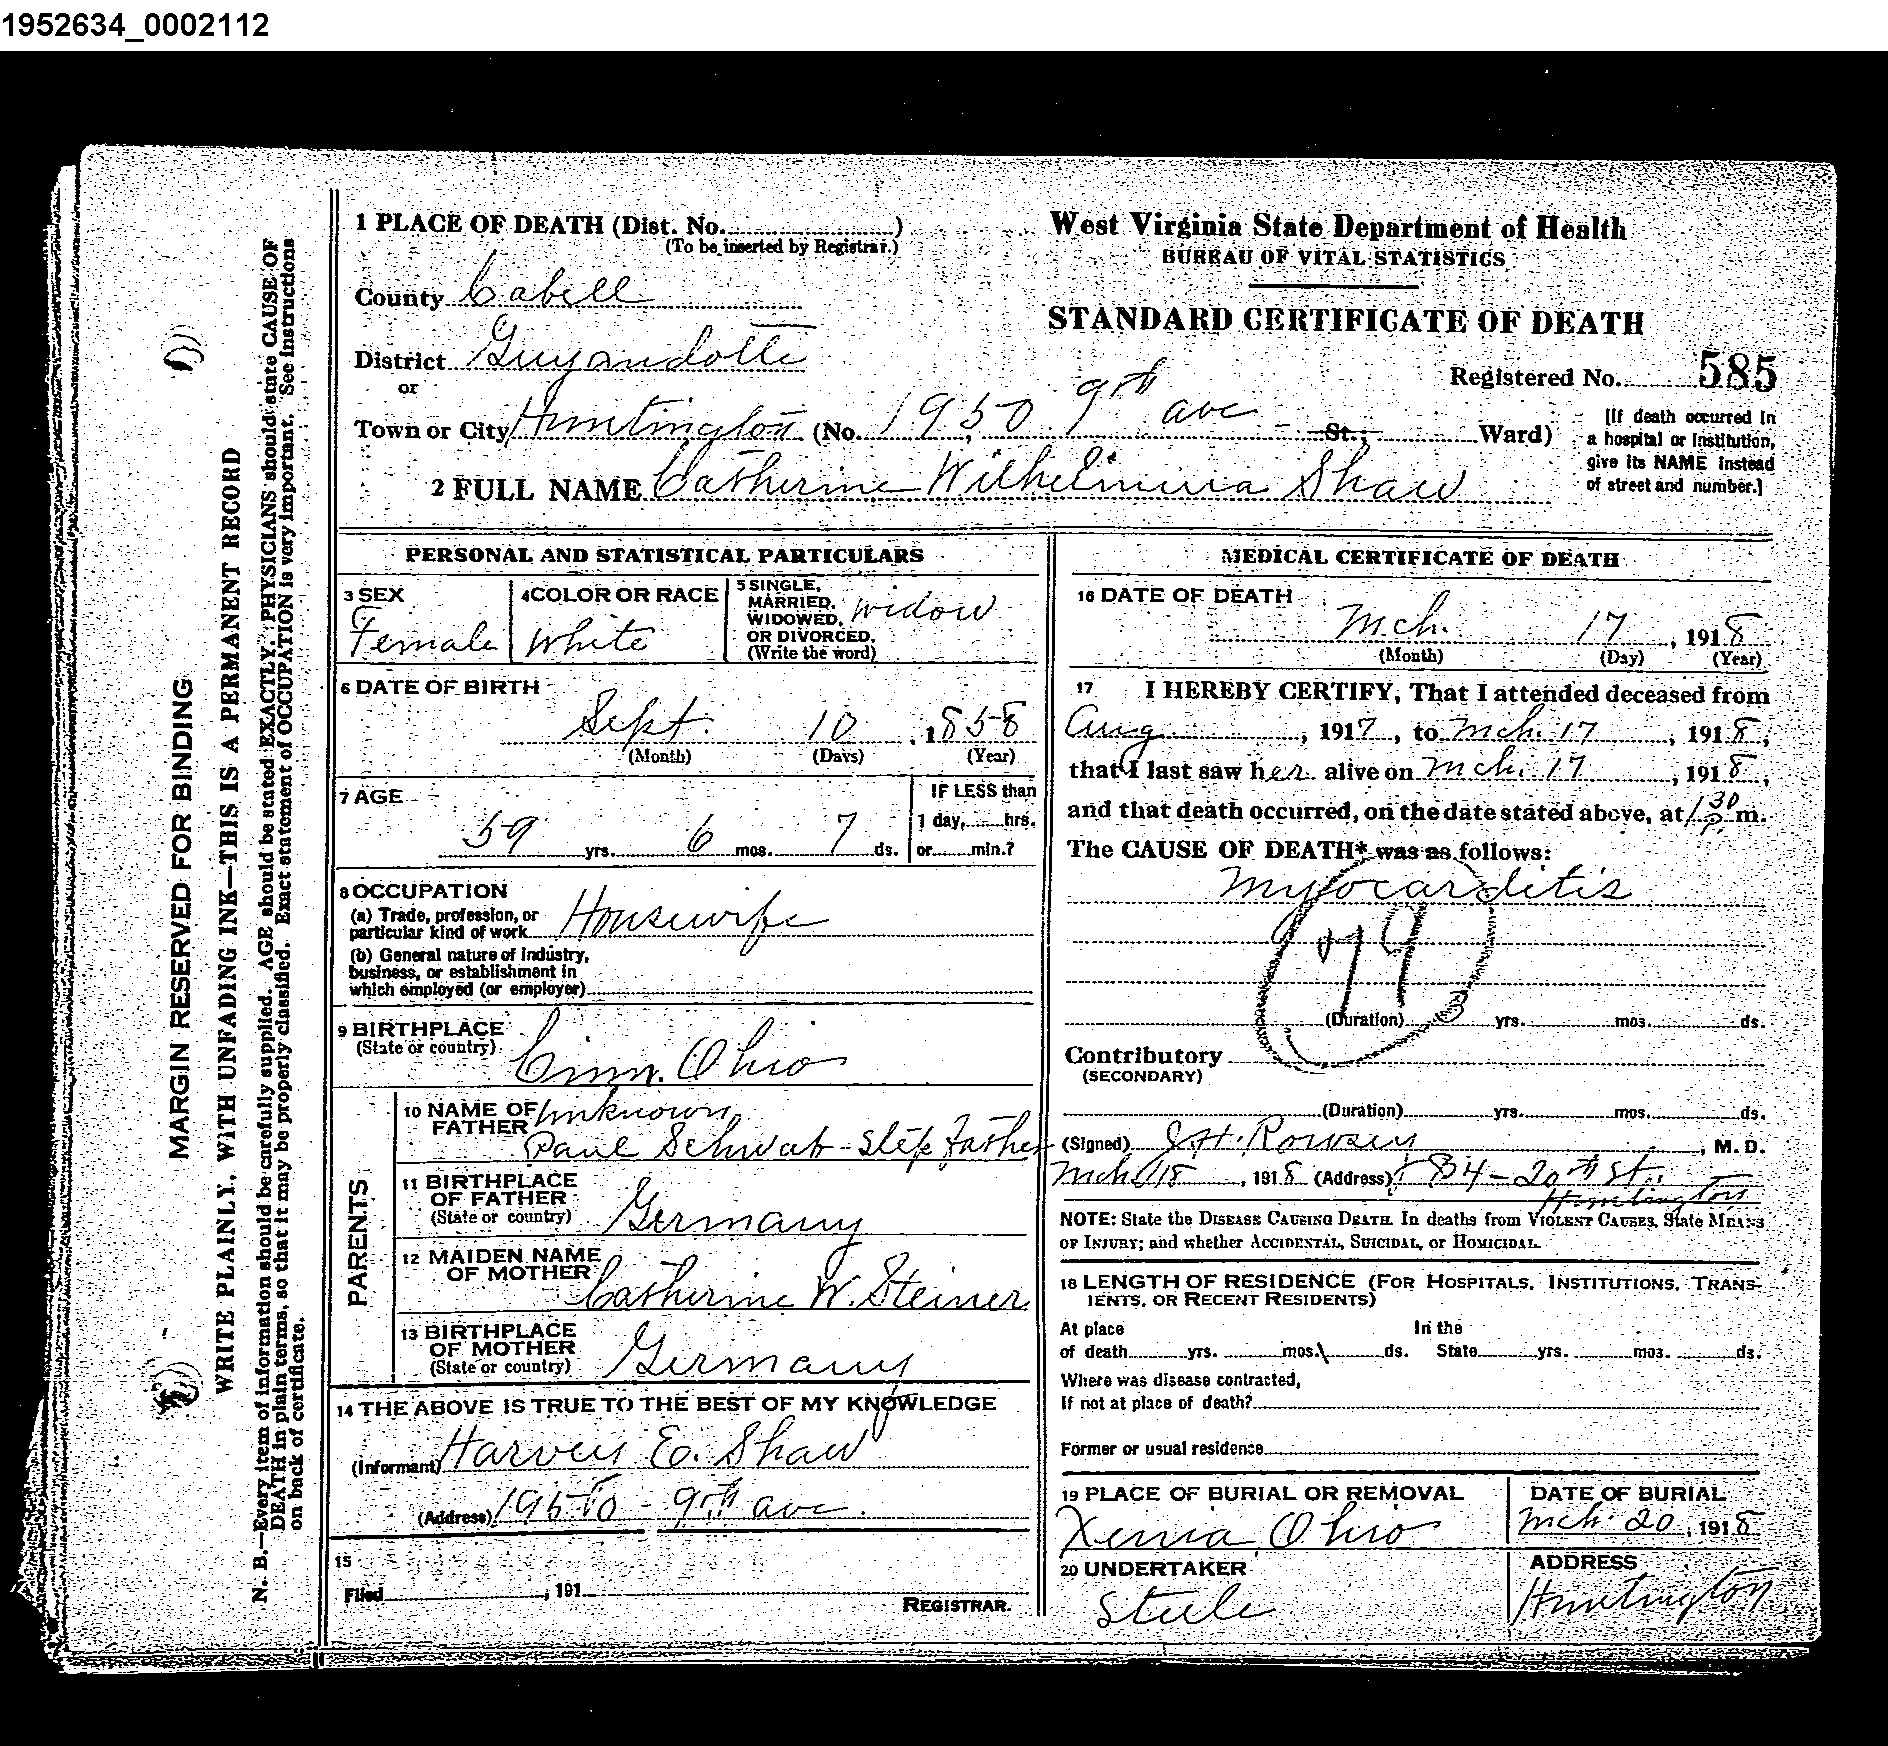 1952634_0002112
MARGIN RESERVED FOR BINDING
WRITE PLAINLY, WITH UNFADING INK—THIS IS A PERMANENT RECORD
N. B.—Every item of information should be carefully supplied. AGE should be stated EXACTLY. PHYSICIANS should state CAUSE OF
DEATH in plain terms, so that it may be properly classified. Exact statement of OCCUPATION is very important. See instructions
on back of certificate.
1 PLACE OF DEATH (Dist. No. )
(To be inserted by Registrar.)
County Cabell
District Guyandotte
or
Town or City Huntington (No. 1950 9th ave St.; Ward)
2 FULL NAME Catherine Wilhelmina Shaw
West Virginia State Department of Health
BUREAU OF VITAL STATISTICS
STANDARD CERTIFICATE OF DEATH
Registered No. 585
[If death occurred in
a hospital or institution,
give its NAME instead
of street and number.]
PERSONAL AND STATISTICAL PARTICULARS
3 SEX
Female
4 COLOR OR RACE
White
5 SINGLE,
MARRIED,
WIDOWED,
OR DIVORCED,
(Write the word)
widow
6 DATE OF BIRTH
Sept. 10, 1858
(Month) (Days) (Year)
7 AGE
59 yrs. 6 mos. 7 ds.
IF LESS than
1 day, hrs.
or min.?
8 OCCUPATION
(a) Trade, profession, or
particular kind of work Housewife
(b) General nature of industry,
business, or establishment in
which employed (or employer)
9 BIRTHPLACE
(State or country)
Cinn. Ohio
PARENTS
10 NAME OF
FATHER
Unknown
Paul Schwab - Step Father
11 BIRTHPLACE
OF FATHER
(State or country) Germany
12 MAIDEN NAME
OF MOTHER
Catherine W. Steiner
13 BIRTHPLACE
OF MOTHER
(State or country) Germany
14 THE ABOVE IS TRUE TO THE BEST OF MY KNOWLEDGE
(Informant) Harvey E. Shaw
(Address) 1950 - 9th ave.
15
Filed , 191
REGISTRAR.
MEDICAL CERTIFICATE OF DEATH
16 DATE OF DEATH
Mch. 17, 1918
(Month) (Day) (Year)
17 I HEREBY CERTIFY, That I attended deceased from
Aug , 1917, to Mch. 17 , 1918,
that I last saw her alive on Mch. 17 , 1918,
and that death occurred, on the date stated above, at 1 30 P. m.
The CAUSE OF DEATH* was as follows:
Myocarditis
79
(Duration) yrs. mos. ds.
Contributory
(SECONDARY)
(Duration) yrs. mos. ds.
(Signed) Rowsey , M. D.
Mch 18 , 1918 (Address) 84 - 20th St.
Huntington
NOTE: State the DISEASE CAUSING DEATH. In deaths from VIOLENT CAUSES, State MEANS
OF INJURY; and whether ACCIDENTAL, SUICIDAL, or HOMICIDAL.
18 LENGTH OF RESIDENCE (FOR HOSPITALS, INSTITUTIONS, TRANS-
IENTS, OR RECENT RESIDENTS)
At place In the
of death yrs. mos. ds. State yrs. mos. ds.
Where was disease contracted,
If not at place of death?
Former or usual residence
19 PLACE OF BURIAL OR REMOVAL
Xenia, Ohio
DATE OF BURIAL
Mch. 20, 1918
20 UNDERTAKER
Steele
ADDRESS
Huntington